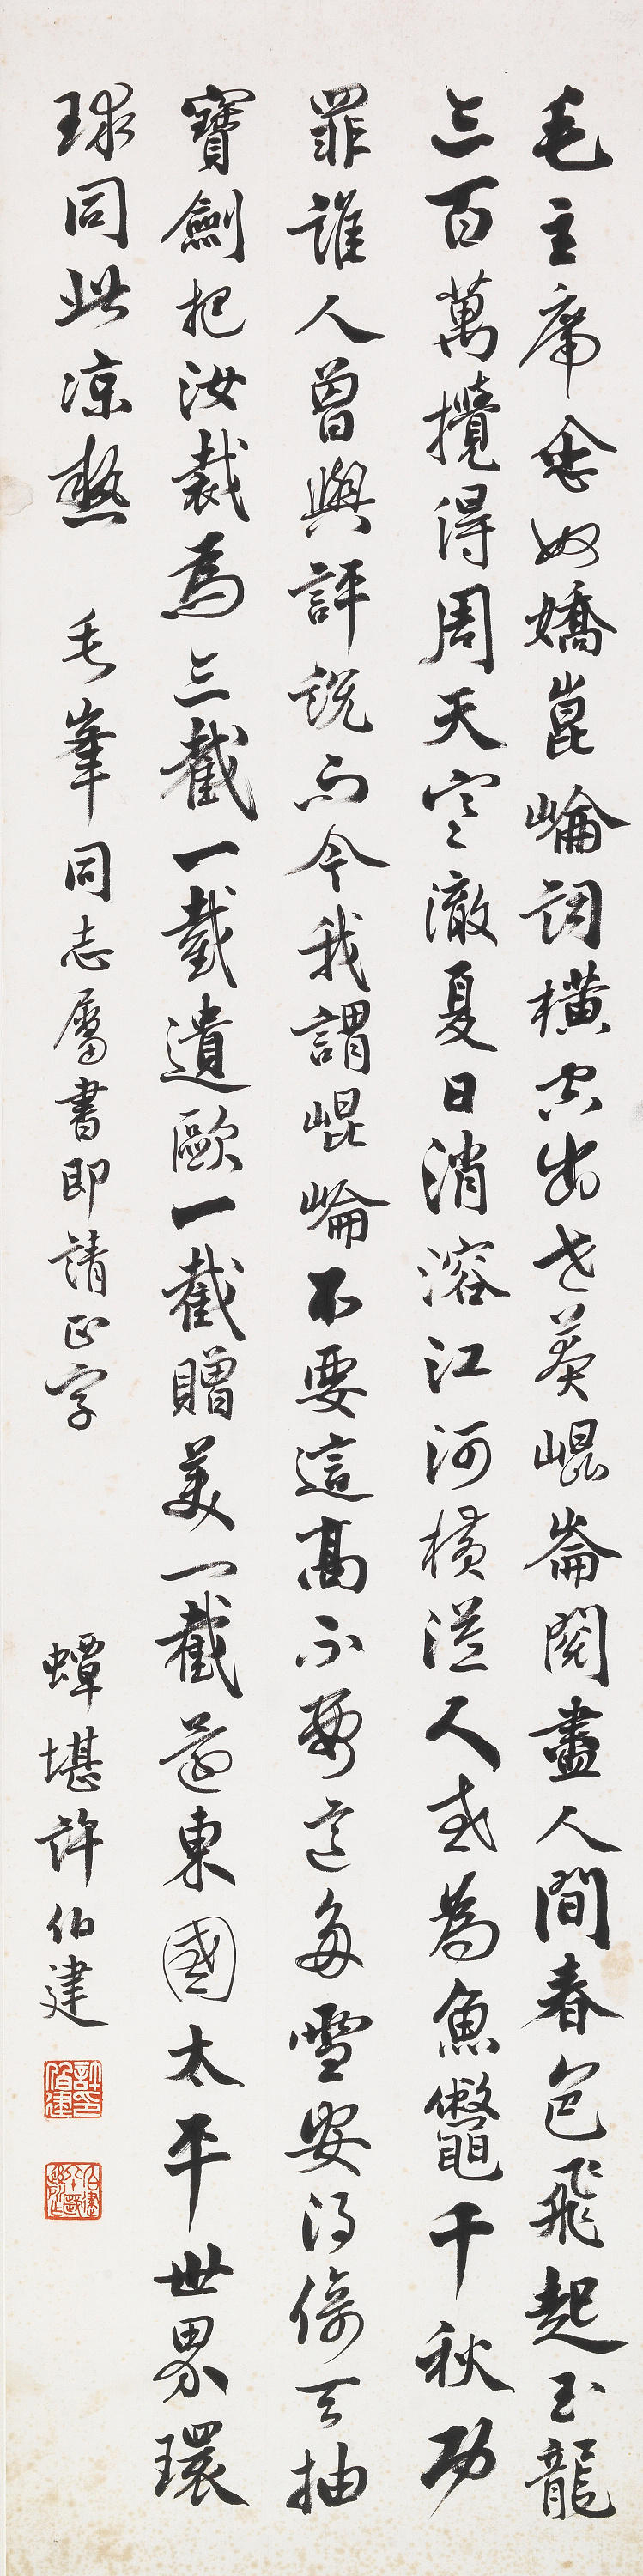 毛主席念奴嬌崑崙詞橫空出世莽崐崙閱盡人間春色飛起玉龍
三百萬攪得周天寒澈夏日消溶江河橫溢人或為魚鼈千秋功
罪誰人曾與評説而今我謂崐崙不要這高不要這多雪安得倚天抽
寶劍把汝裁為三截一截遺歐一截贈美一截還東國太平世界環
球同此凉熱
毛峯同志屬書即請正字
蟫堪許伯建
許伯建印